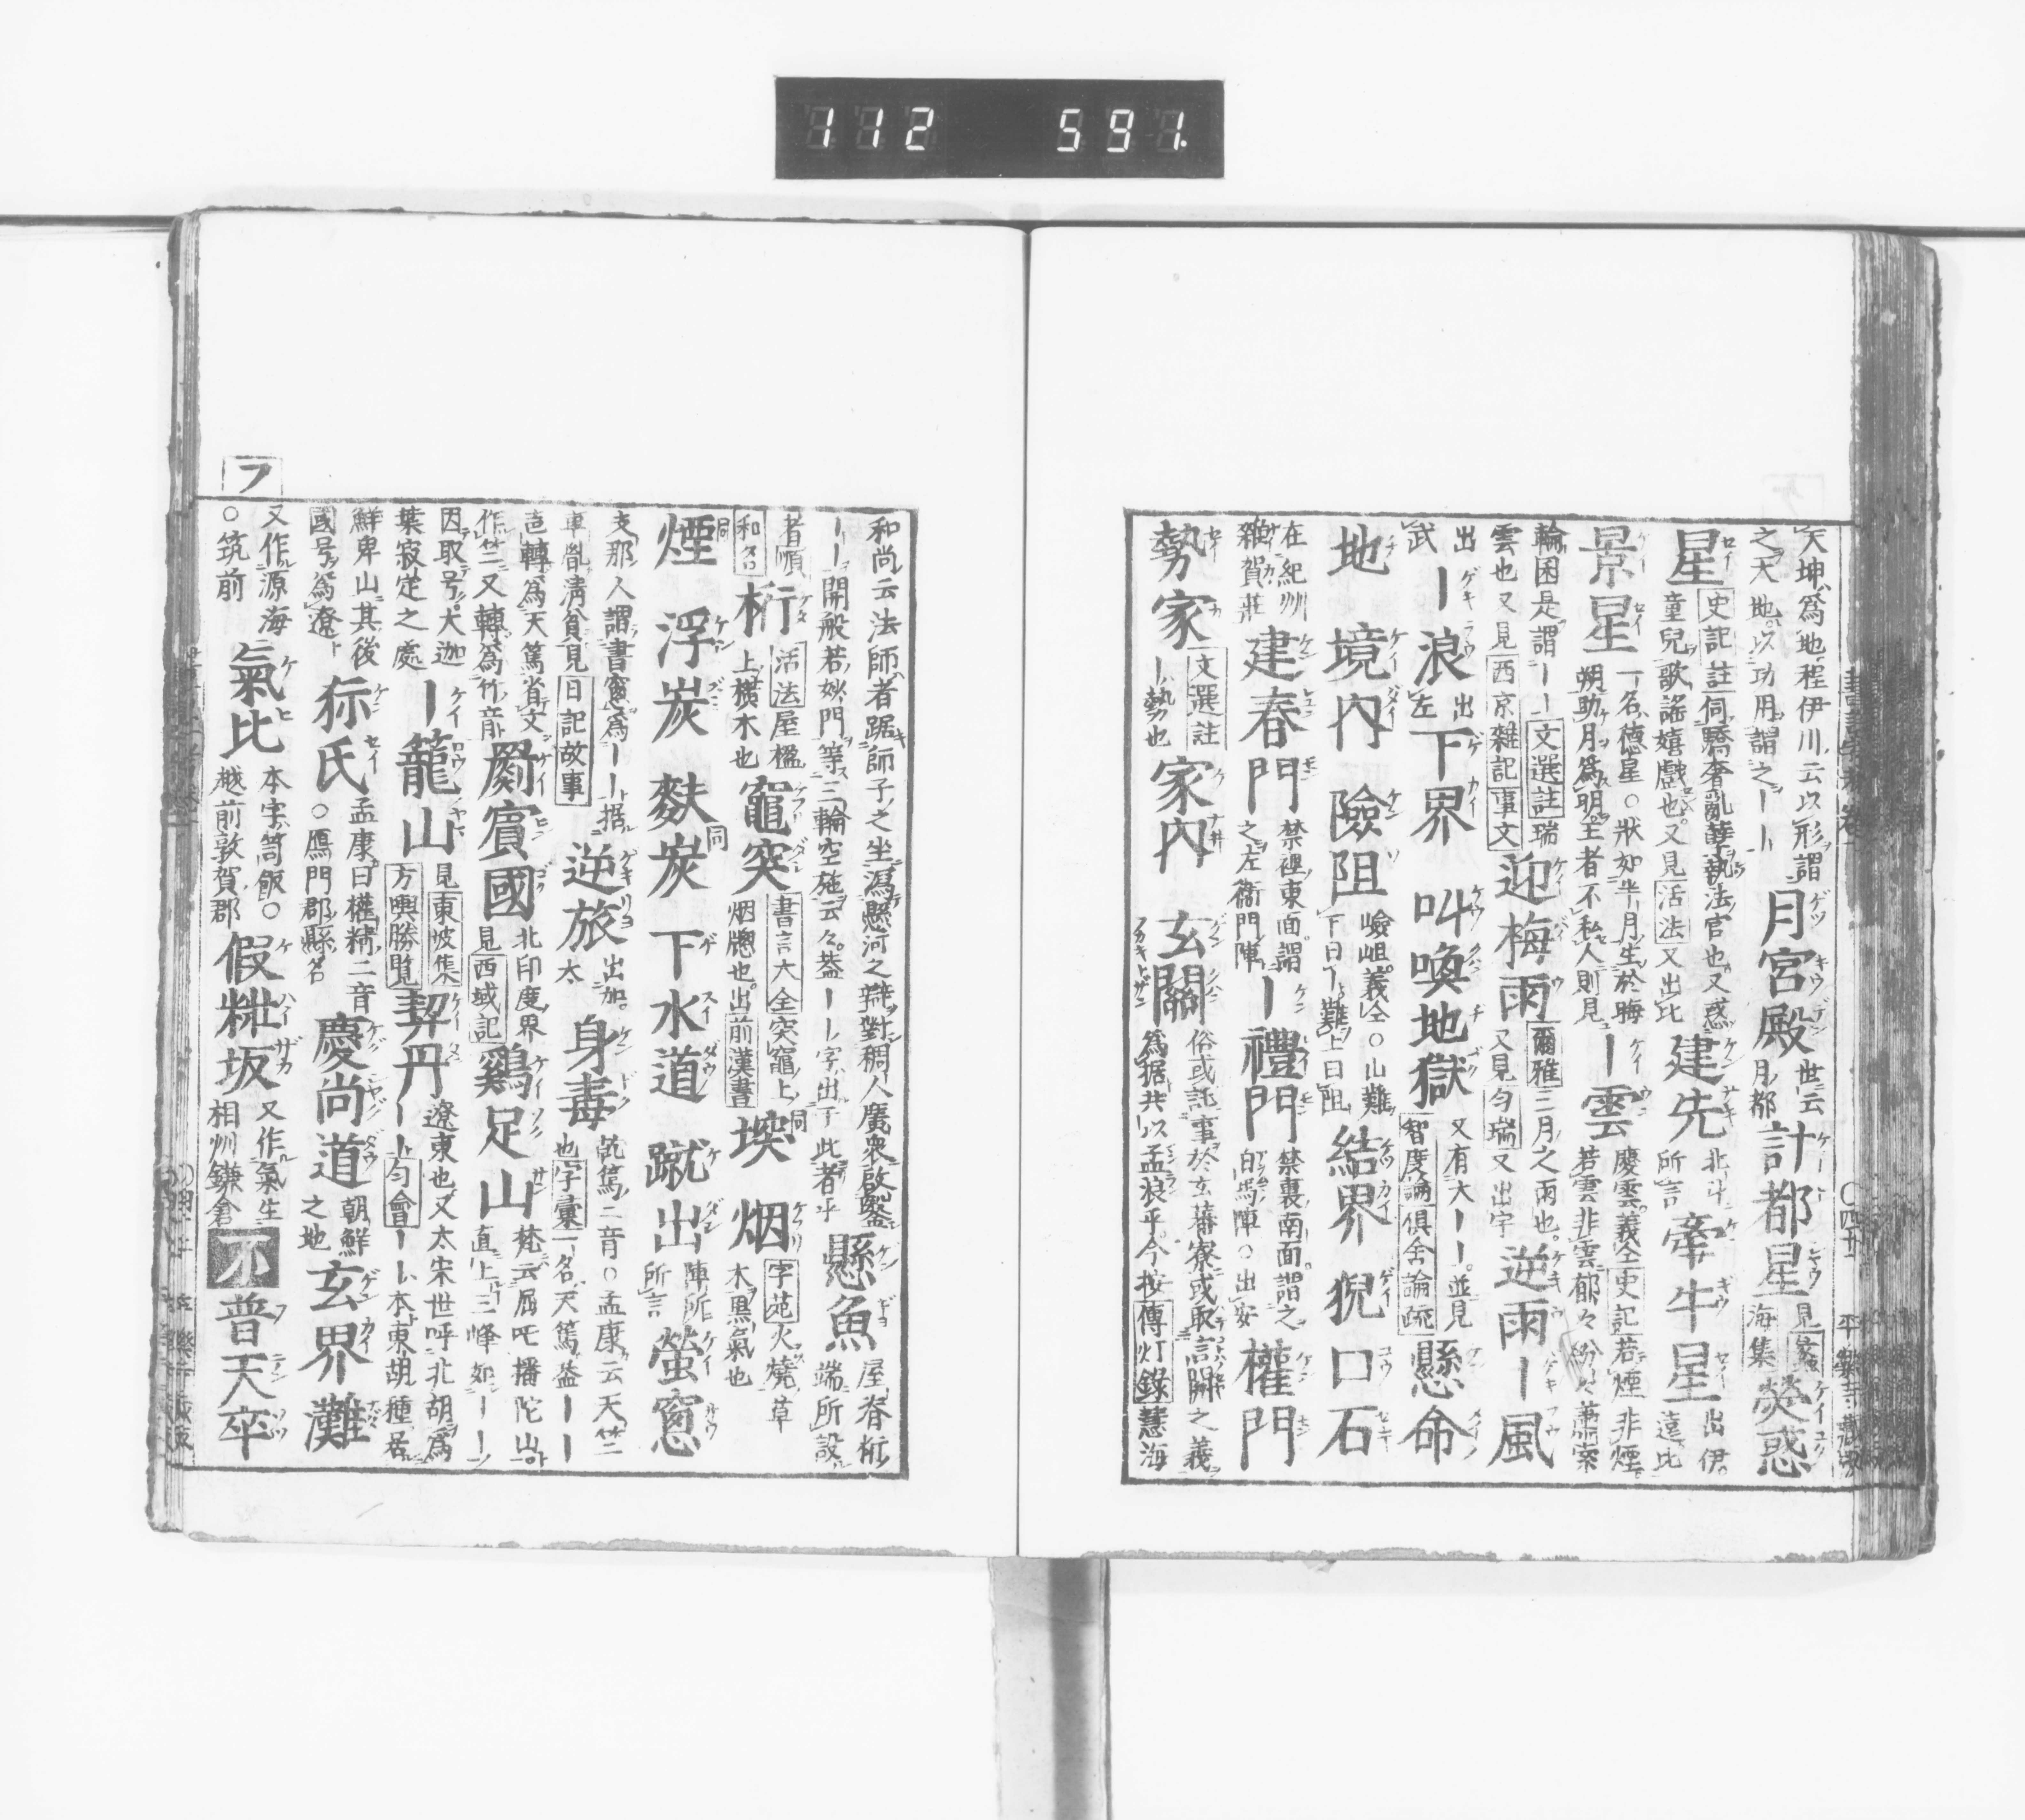 112 591.
天坤爲地程伊川云以形謂
之天地以功用謂之ーー
月宮殿
世云
月都
計都星
見蠡
海集
熒惑
星
史記註伺驕奢亂孽執法官也又惑
童兒歌謠嬉戲也又見活法又出比
建先
北斗
所言
牽牛星
出伊
遠比
景星
一名德星○狀如半月生於晦
朔助月爲明王者不私人則見
ー雲
慶雲義仝史記若煙非煙
若雲非雲郁々紛々蕭索
輪囷是謂ーー文選註瑞
雲也又見西京雜記事文
迎梅雨
爾雅三月之雨也
又見匀瑞又出宇
逆雨
ー風
出
武
ー浪
出
左
下界
叫喚地獄
又有大ーー並見
智度論俱舍論疏
懸命
地
境内
險阻
嶮岨義仝○山難
下曰ー難上曰阻
結界
猊口石
在紀州
雜賀莊
建春門
禁裡東面謂
之左衞門陣
ー禮門
禁裏南面謂之
白馬陣○出安
權門
勢家
文選註
ー勢也
家内
玄關
俗或託事於玄蕃寮或取言關之義
爲据共以孟浪乎今按傳灯錄慧海
和尚云法師者踞師子之坐瀉懸河之辯對稠人廣衆啟鑿
ーー開般若妙門等三輪空施云々蓋ーー字出于此者乎
懸魚
屋脊桁
端所設
者順
和名
桁
活法屋楹
上横木也
竈突
書言大全突竈上
烟牕也出前漢書
堗
烟
字苑火燒草
木黒氣也
煙
浮炭
麩炭
下水道
蹴出
陣所
所言
螢窓
支那人謂書窻爲ーー据
車胤淸貧見日記故事
逆旅
出加
太
身毒
乾篤二音○孟康云天竺
也字彙一名天篤蓋ーー
音轉爲天篤省文
作竺又轉爲竹音
罽賓國
北印度界
見西域記
鷄足山
梵云屈吒播陀山
直上三峰如ーー
因取号大迦
葉寂定之處
ー籠山
見東坡集
方輿勝覽
契丹
遼東也又太宋世呼北胡爲
ーー匀會ーー本東胡種居
鮮卑山其後
國号爲遼
狋氏
孟康曰權精二音
○鴈門郡縣名
慶尚道
朝鮮
之地
玄界灘
又作源海
○筑前
氣比
本字笥飯○
越前敦賀郡
假粃坂
又作氣生
相州鎌倉
不
普天
卒
フ